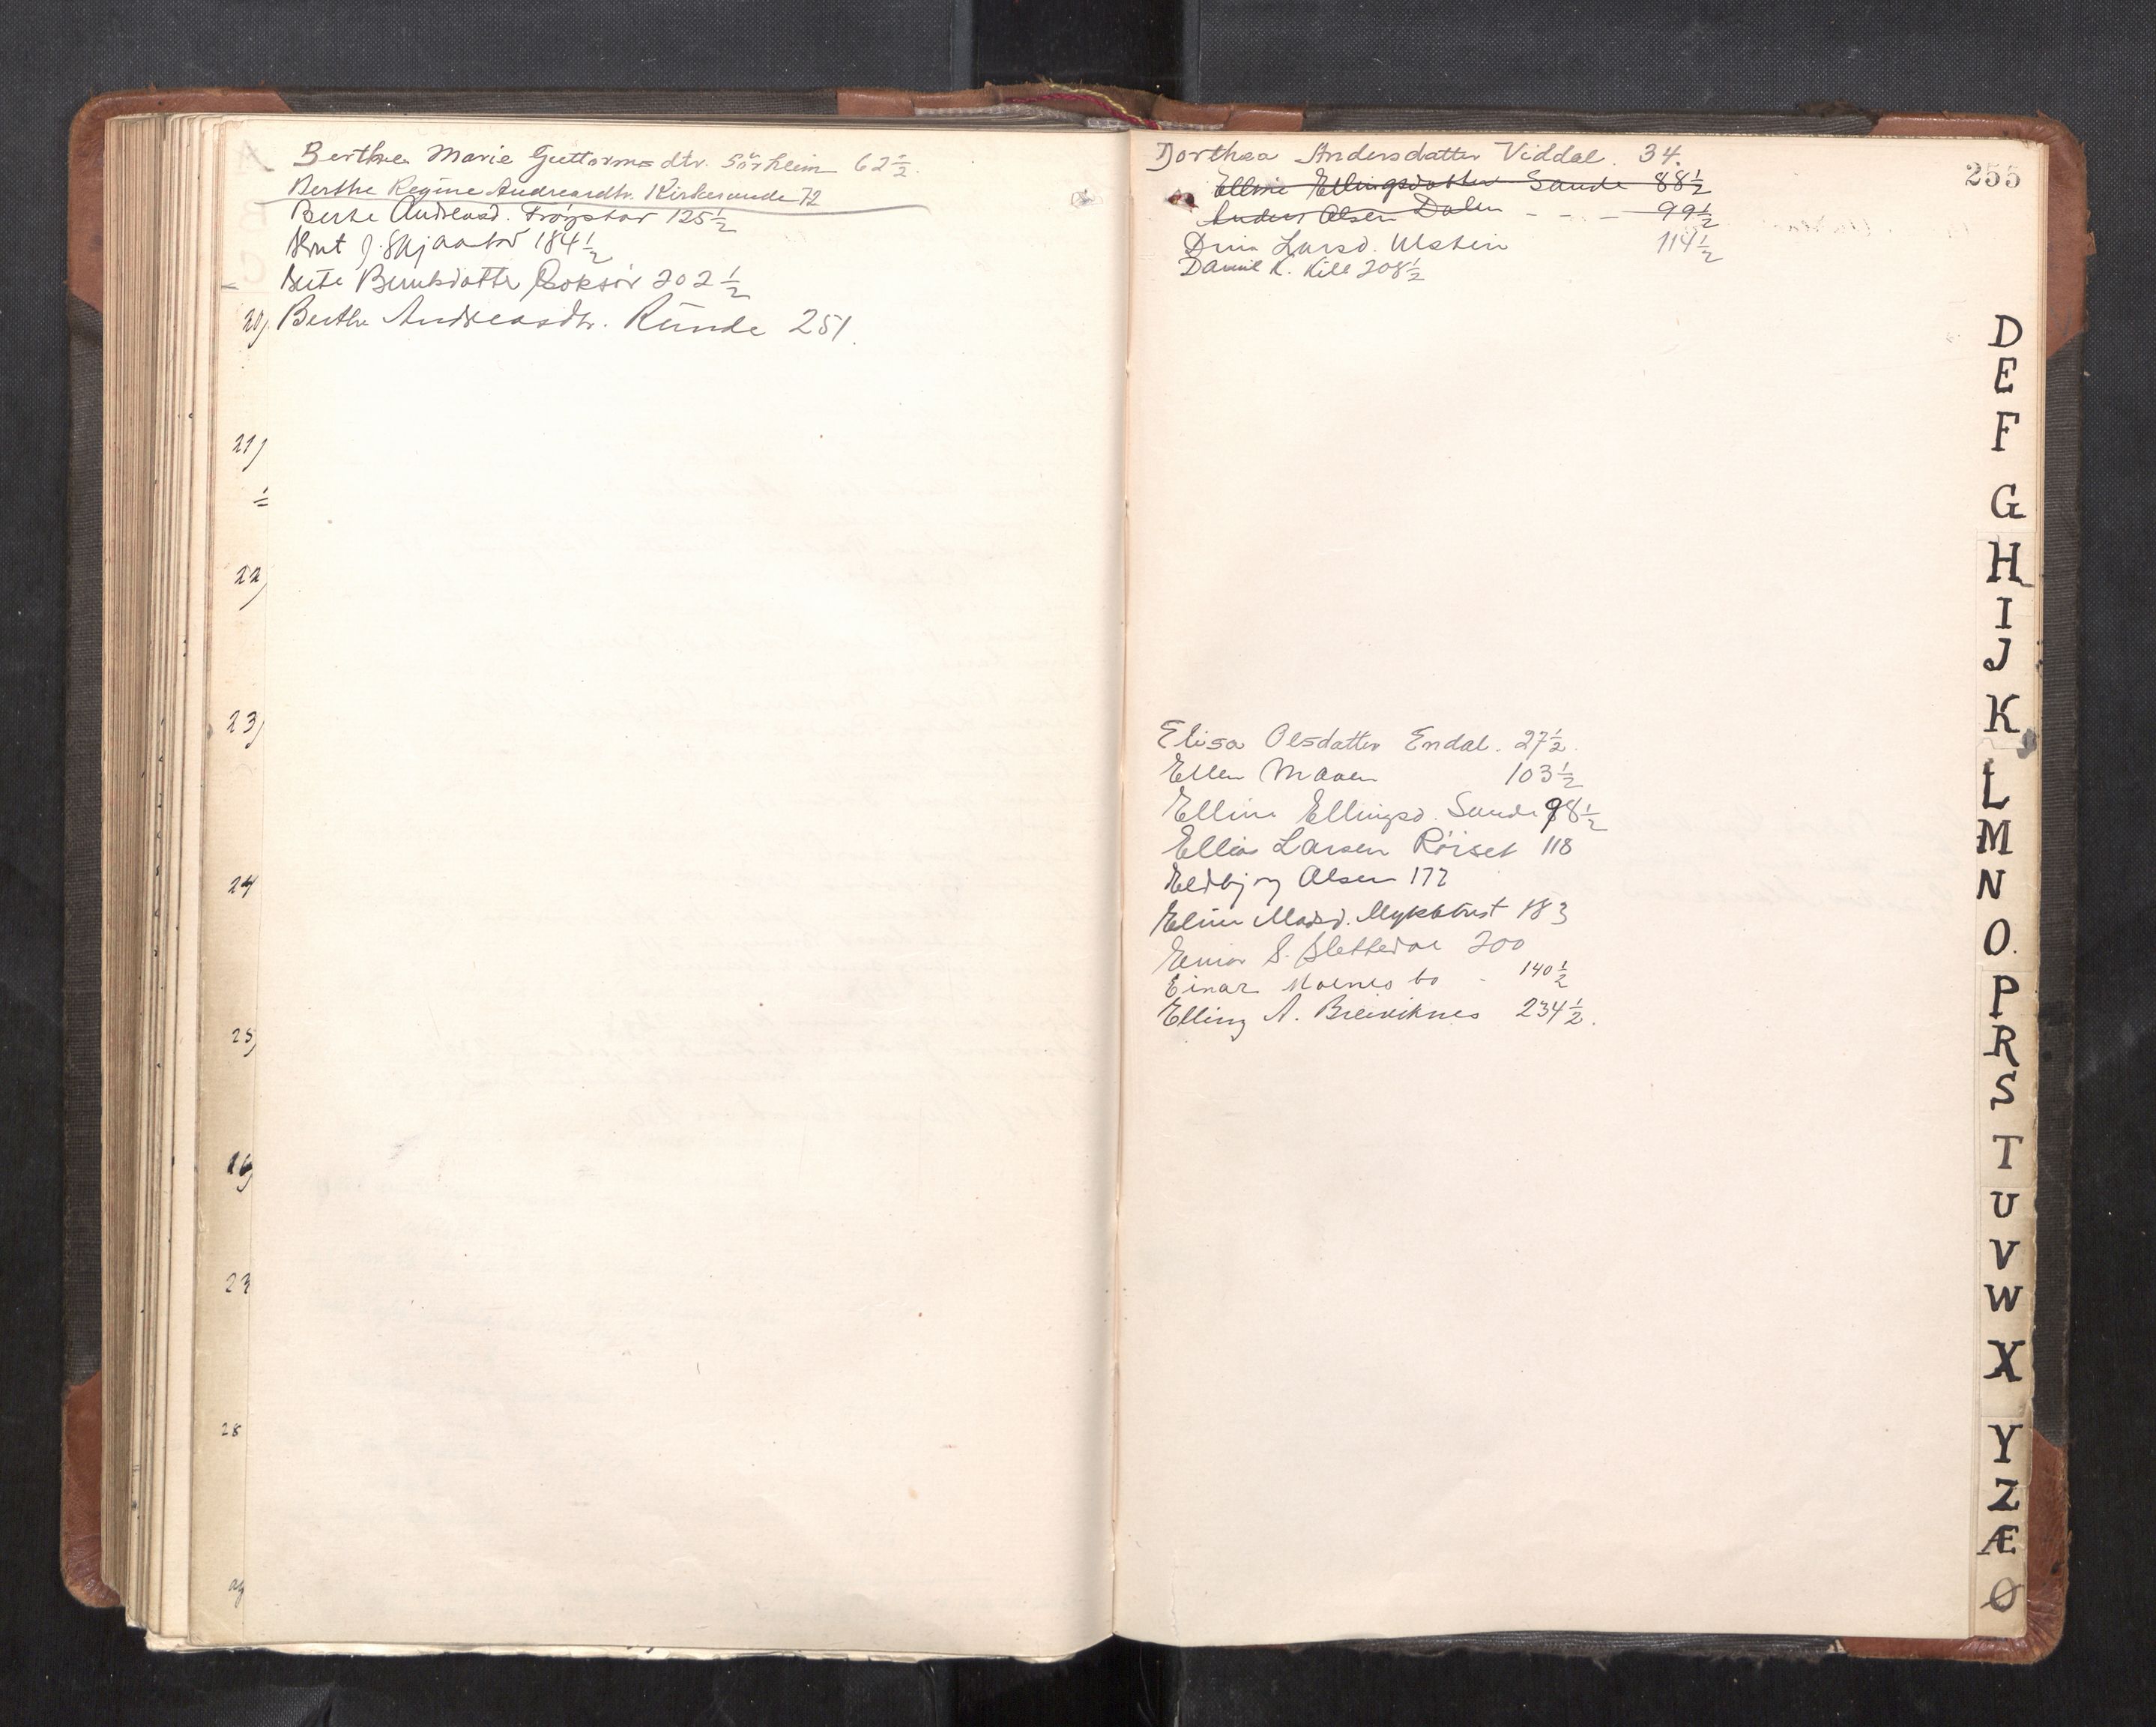 Berthe Marie Guttormsdtr. Sörheim 62½.
Berthe Regine Andreasdtr. Kirkerunde 72
Berte Andreasd. Tröystav 125½
Knut J. Skjaatvo 184½
Berte Berntsdatter Boksör 202½
20) Berthe Andreasdtr. Runde 251.
21)
22)
23)
24
25)
16)
23
28
255
Dorthea Andersdatter Viddal. 34.
Elline Ellingsdatter Sande 88½
Anders Olsen Dalen - - - 99½
Drin Larsd. Ulstein 114½
Daniel K. Kile 208½
Elisa Olsdatter Endal. 27½.
Ellen Maven 103½
Elline Ellingsd. Sande 98½
Ellias Larsen Röiset 118
Eldbjörg Olsen 177
Eline Madsd. Myklebust 183
Einar S. Slettedal 200
Einar Molnes bo - 140½
Elling A. Breiviknes 234½.
D
E
F
G
H
I
J
K
L
M
N
O.
P
R
S
T
U
V
W
X
Y
Z
Æ
Ø